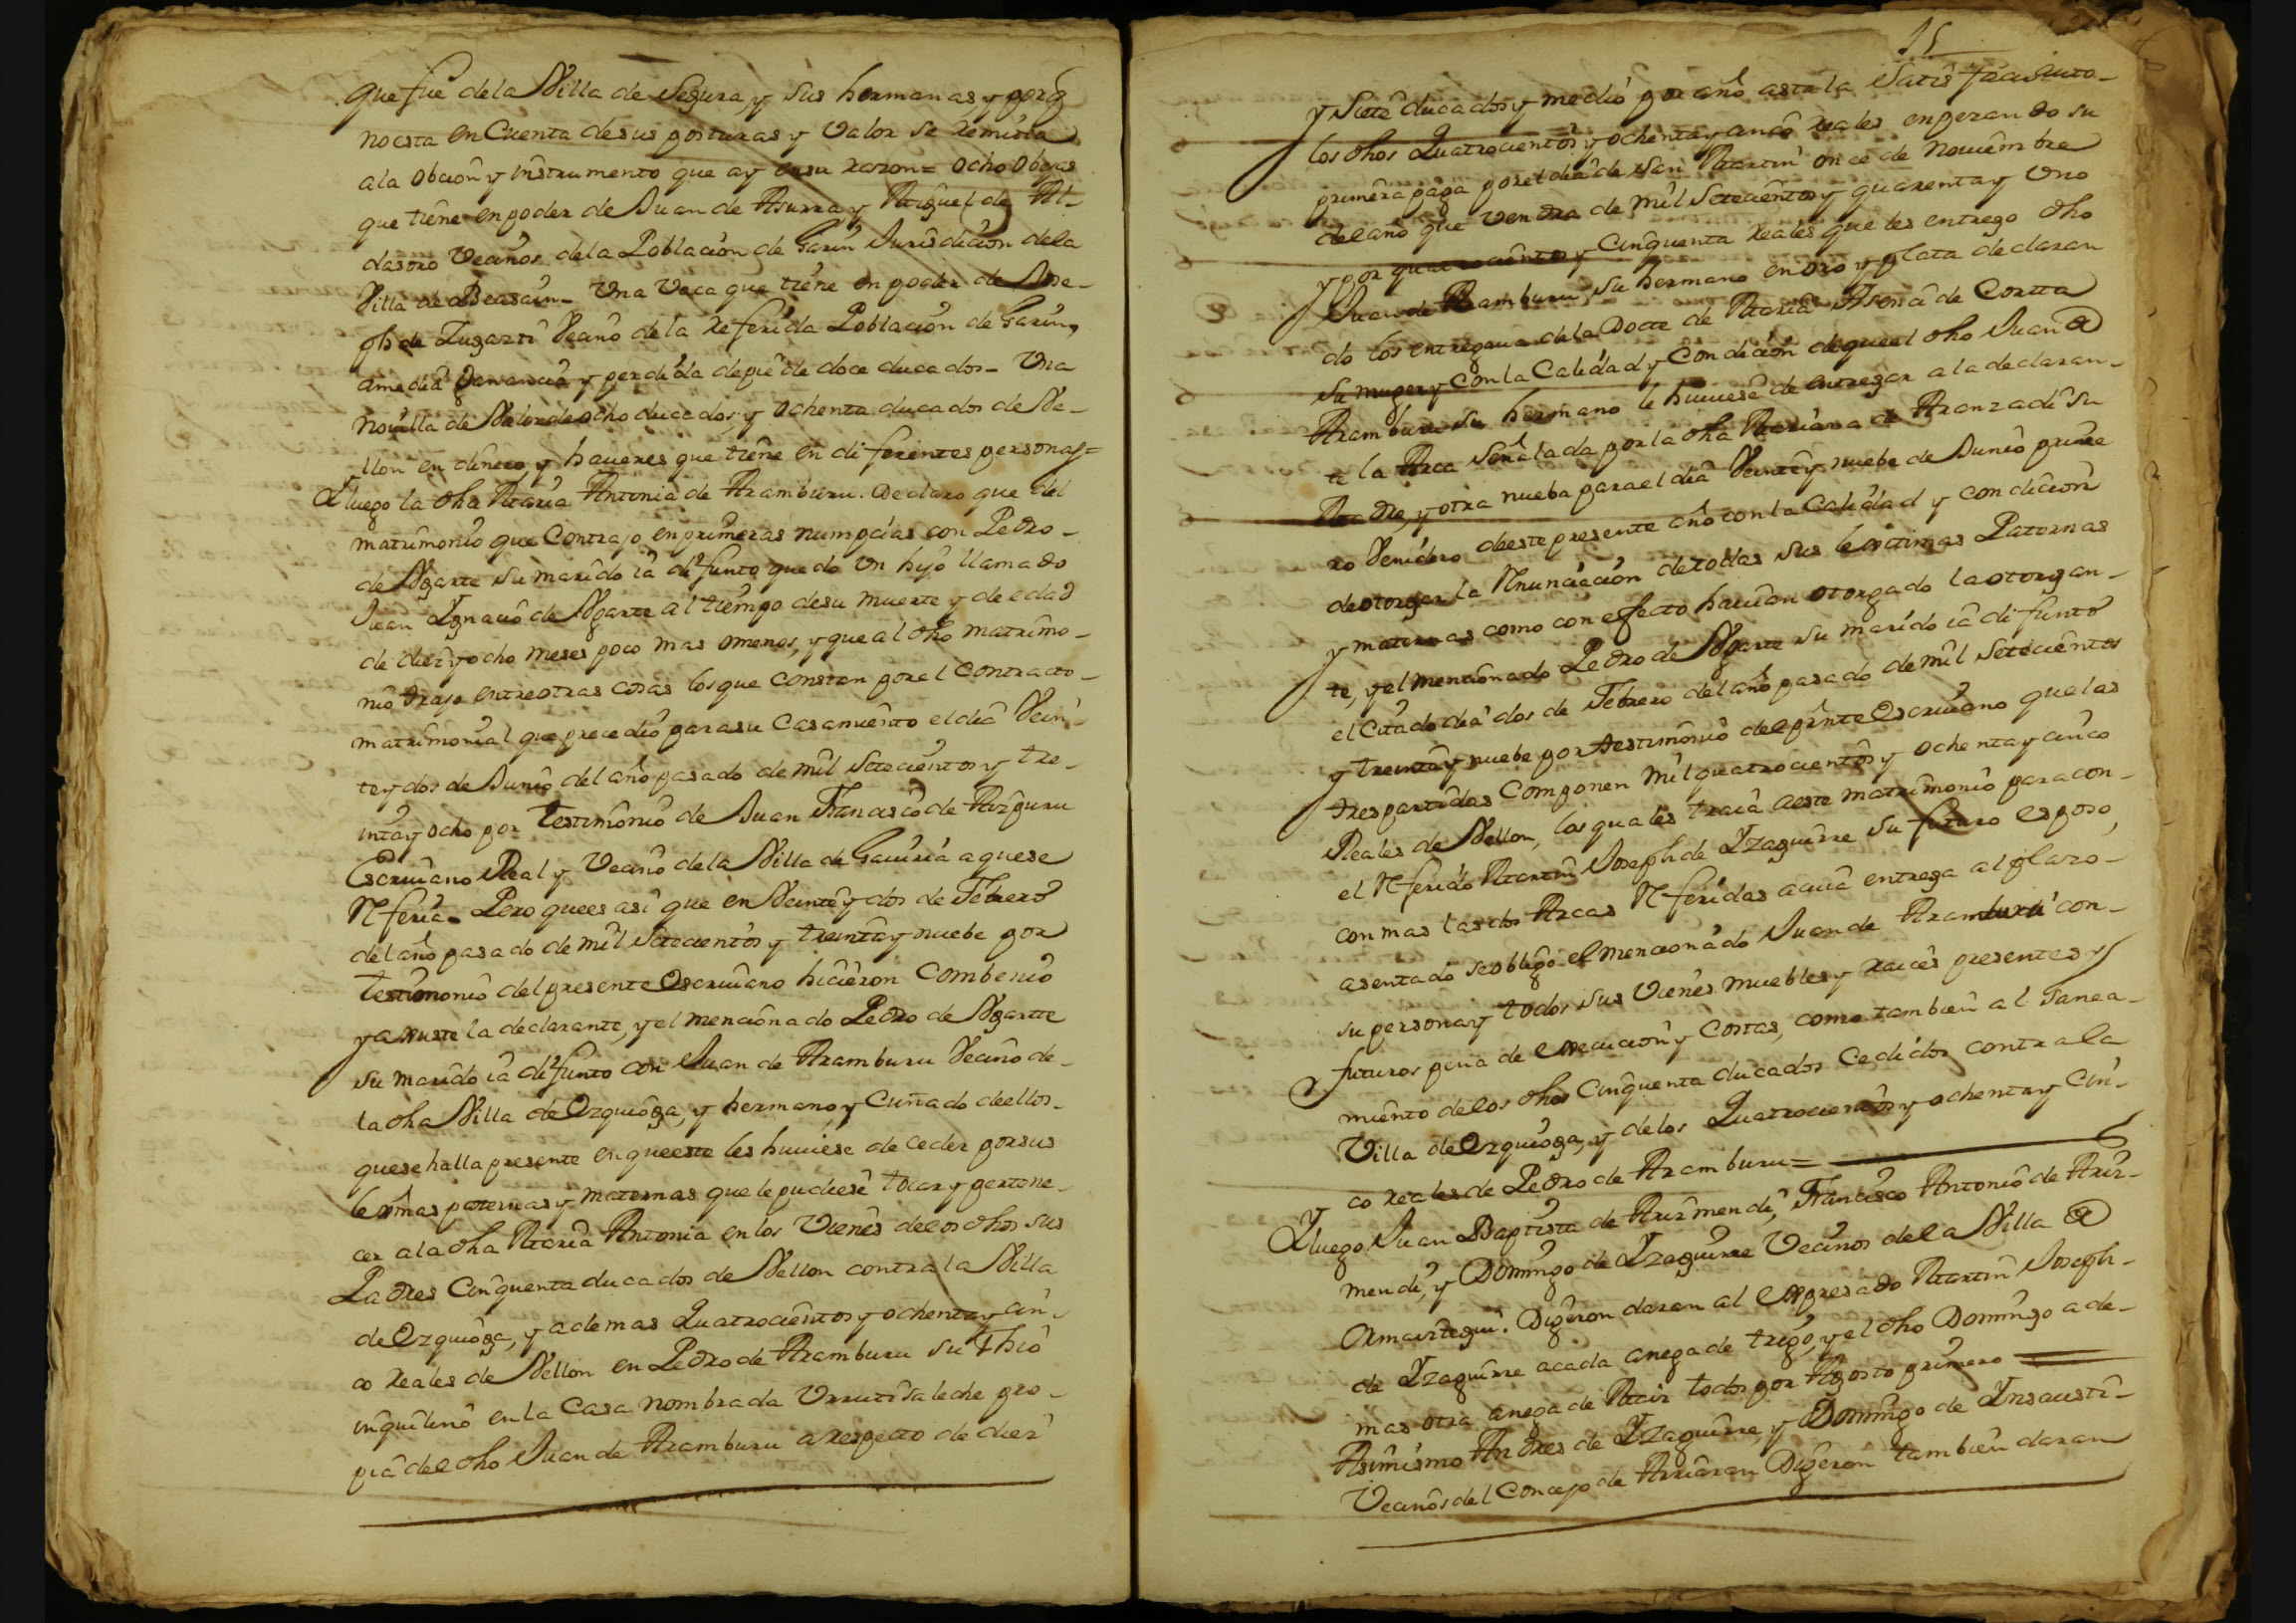 que fue dela Villa de Segura, y sus hermanas y porq
no esta en Cuenta de sus posturas y valor se remitia
ala obcion y instrumento que ay en su razon = ocho obejas
que tiene en poder de Juan de Asurra y Miguel de Al-
dasoro Vecinos dela Poblacion de Garin Jurisdicion dela
Villa de Beasain - Una Vaca que tiene en poder de Jose-
ph de Zugarti Vecino de la referida Poblacion de Garin,
amedia Ganancia y perdida depie de doce ducados - Una
Novilla de Valor de ocho ducados, y ochenta ducados de Ve-
llon en dinero, y haueres que tiene en diferentes personas=
Y luego la dha Maria Antonia de Aramburu. Declaro que del
matrimonio que Contrajo en primeras numpcias con Pedro-
de Ugarte su marido ia difunto quedo un hijo llamado
Juan Ygnacio de Ugarte al tiempo de su muerte y de edad
de diez y ocho meses poco mas omenos, y que al dho matrimo-
nio trajo entre otras cosas los que constan por el Contracto-
matrimonial que precedio para su Casamiento el dia Vein-
te y dos de Junio del año pasado de mil Setecientos y tre-
inta y ocho por testimonio de Juan Francisco de Aizpuru
Escriuano Real y Vecino dela Villa de Gauiria a que se
Referia - Pero que es asi que en Veinte y dos de Febrero
del año pasado de mil Setecientos y treinta y nuebe por
testimonio del presente Escriuano hicieron Combenio
y ajuste la declarante, y el mencionado Pedro de Ugartte
su marido ia difunto con Juan de Aramburu Vecino de-
la dha Villa de Ezquioga, y hermano, y Cuñado de ellos-
que se halla presente en que este les huuiese de ceder por sus
lexmas paternas y maternas que le pudiese tocar y pertene-
cer a la dha Maria Antonia en los Vienes de los dhos sus
Padres Cinquenta ducados de Vellon contra la Villa
de Ezquioga, y ademas Quatrocientos y ochenta y cin-
co Reales de Vellon en Pedro de Aramburu su thio
inquilino en la Casa nombrada Urrutisaleche pro-
pia del dho Juan de Aramburu a respecto de diez
15
y Siete ducados y medio por año asta la Satisfacion to-
los dhos Quatrocientos y ochenta y cinco reales enperando su
primera paga por el dia de San Martin once de Nouiembre
del año que vendra de mil Setecientos y quarenta y uno
y por quatrocientos y Cinquenta Reales que les entrego dho
Juan de Aramburu, su hermano en oro y plata declaran
do los entregaua de la Docte de Maria Asencia de Cortta
su muger y con la Calidad y Condicion de que el dho Juan de
Aramburu su hermano le huuiese de entregar a la declaran-
te la Arca Señalada por la dha Mariana de Aranzadi su
Madre, y otra nueba para el dia Veinte y nuebe de Junio prime
ro Venidero de este presente año con la Calidad y condicion
de otorgar la Renunciacion de todas sus lexitimas Paternas
y maternas como con efecto hauian otorgado la otorgan-
te, y el mencionado Pedro de Ugarte su marido ia difunto
el Citado dia dos de Febrero del año pasado de mil Setecientos
y treinta y nuebe por testimonio del presnte Escriuano que las
tres partidas Componen Mil quatrocientos y ochenta y cinco
Reales de Vellon, los quales traia a este matrimonio para con-
el Referido Martin Joseph de Yzaguirre su futuro esposo,
con mas las dos Arcas Referidas a cuia entrega al plazo-
asentado se obligo el mencionado Juan de Aramburu con-
su persona y todos sus Vienes muebles y raices presentes y
futuros pena de execucion y Costas, como tambien al Sanea-
miento de los dhos Cinquenta ducados Cedidos contra la
Villa de Ezquioga, y de los Quatrocientos y ochenta y Cin-
co reales de Pedro de Aramburu =
Y luego Juan Baptista de Arizmendi, Francisco Antonio de Ariz-
mendi, y Domingo de Yzaguirre Vecinos de la Villa de
Ormaiztegui. Digeron daran al expresado Martin Joseph-
de Yzaguirre a cada anega de trigo, y el dho Domingo a de-
mas otra anega de Maiz todos por Agosto primero
Asimismo Andres de Yzaguirre, y Domingo de Ynsausti-
Vecinos del Concejo de Arriaran Digeron tambien daran